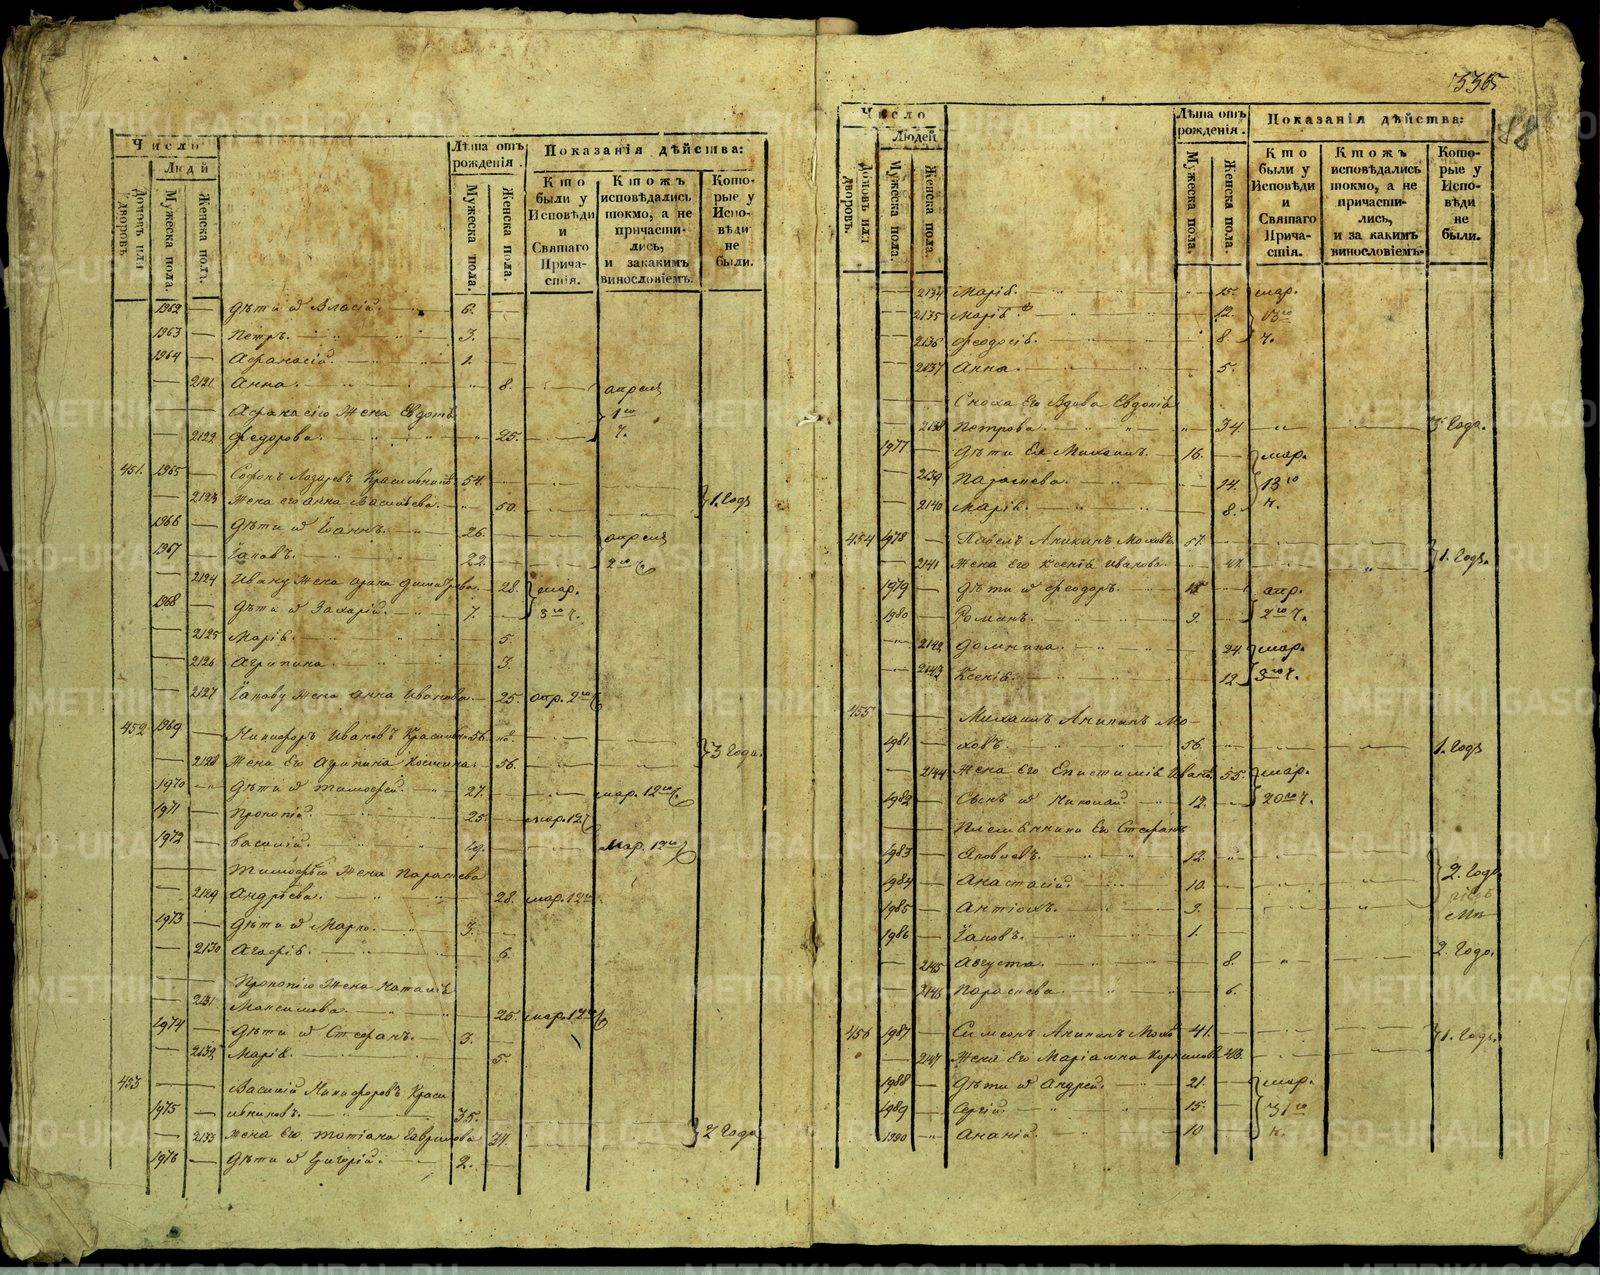 Число
Людй
Домовъ или дворовъ.
Мужеска пола.
Женска пола.
Лѣта отъ рожденія.
Мужеска пола.
Женска пола.
Показанія дѣйства:
Кто были у Исповѣди и Святаго Прича- стія.
Ктожъ исповѣдались токмо, а не причасти- лись, и закакимъ винословіемъ.
Кото- рые у Испо- вѣди не были.
1962 Дѣти и Власій. 6.
1963 Петръ. 3.
1964 Афанасій. 1.
2121 Анна. 8. апреля
Афанасію Жена Евдотья 1го
2122 Федорова. 25. ч.
451. 1965 Софонъ Лазаревъ 54.
2123 Жена его Анна Васильева. 50. 1. Годъ
1966 Дѣти и Іоаннъ. 26. апреля
1967 Іаковъ. 22. 2го ч
2124 Ивану Жена 28. мар.
1968 Дѣти и Захарій. 7. 3го ч.
2125 Марія. 5.
2126 Агрипина 3.
2127 Іакову Жена Анна Иванова. 25. апр. 2го ч
452 1969 Никифоръ Ивановъ 56. 3 Года.
2128 Жена Его Агрипина 56.
1970 Дѣти и Тимофей. 27. мар. 12го ч.
1971 Прокопій. 25. мар. 12 ч
1972 Василій. 19. мар. 12го ч
Тимофѣю Жена Парасќева
2129 Андрѣева. 28. мар. 12го
1973 Дѣти и Марко. 3.
2130 Агафія. 6.
Прокопію Жена Наталія
2131 Максимова. 25. мар. 12го ч
1974 Дѣти и Стефанъ. 3.
2132 Марія. 5.
453 Василій Никифоровъ Краси
1975 льниковъ. 35.
2133 Жена Его Татіана Гаврилова 34. 2 Года
1976 Дѣти и Григорій. 2.
335
88
Число
Людей
Домовъ или дворовъ.
Мужеска пола.
Женска пола.
Лѣта отъ рожденія.
Мужеска пола.
Женска пола.
Показанія дѣйства:
Кто были у Исповѣди и Святаго Прича- стія.
Ктожъ исповѣдались токмо, а не причасти- лись, и за какимъ винословіемъ.
Кото- рые у Испо- вѣди не были.
2134 Марія. 15. мар.
2135 Марія 12. 13го
2136 Феодосія. 8. ч.
2137 Анна. 5.
Сноха Его Вдова Евдокія
2138 Петрова. 34. 3. Года.
1977 Дѣти Ея Михаилъ. 16. мар.
2139 Параскева. 14. 13го
2140 Марія. 8. ч.
454 1978 Павелъ Аникинъ Моховъ. 57.
2141 Жена Его Ксенія Иванова. 47. 1. Годъ.
1979 Дѣти и Феодоръ. 15 апр.
1980 Романъ. 9. 2го ч.
2142 Домнина. 24. мар.
2143 Ксенія. 12 3го ч.
455 Михаилъ Аникинъ Мо-
1981 ховъ. 56. 1. Годъ
2144 Жена Его Епистимія Иван. 55. мар.
1982 Сынъ и Николай. 12. 20го ч.
Племянники Его Стефанъ
1983 Яковлевъ. 12.
1984 Анастасій. 10. 2. Года
1985 Антіохъ. 3.
1986 Іаковъ. 1.
2145 Августа. 8. 2. Года.
2146 Параскева. 6.
456 1987 Симеонъ Аникинъ Мохо 41. 1. Годъ.
2147 Жена Его Маріамна Корнилова 43.
1988 Дѣти и Андрей. 21. мар.
1989 Сергій. 15. 31го
1990 Ананій. 10 ч.
METRIKI.GASO-URAL.RU